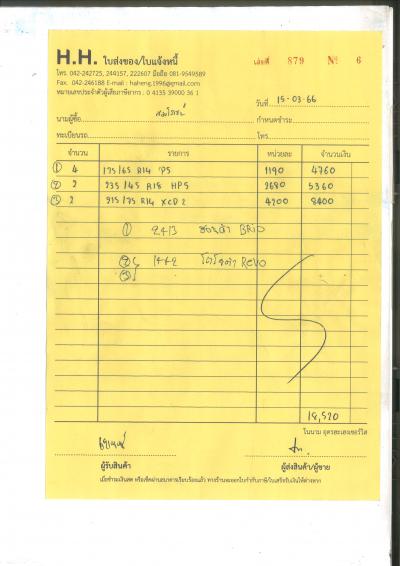 H.H. ใบส่งของ/ใบแจ้งหนี้
เล่มที่ 879 № 6
โทร. 042-242725, 244157, 222607 มือถือ 081-9549589
Fax. 042-246188 E-mail : haheng.1996@gmail.com
หมายเลขประจำตัวผู้เสียภาษีอากร : 0 4135 39000 36 1
วันที่ 15-03-66
นามผู้ซื้อ กำหนดชำระ
ทะเบียนรถ โทร.
จำนวน รายการ หน่วยละ จำนวนเงิน
① 4 175/65 R14 P5 1190 4760
② 2 235/45 R18 HP5 2680 5360
③ 2 215/75 R14 XCD2 4200 8400
① 2413 ฮอนด้า BRIO
② 1442 โตโยต้า REVO
③
18,520
ในนาม อุดรฮะเฮงเซอร์วิส
ผู้รับสินค้า ผู้ส่งสินค้า/ผู้ขาย
เมื่อชำระเงินสด หรือเช็คผ่านธนาคารเรียบร้อยแล้ว ทางร้านจะออกใบกำกับภาษี/ใบเสร็จรับเงินให้ต่างหาก